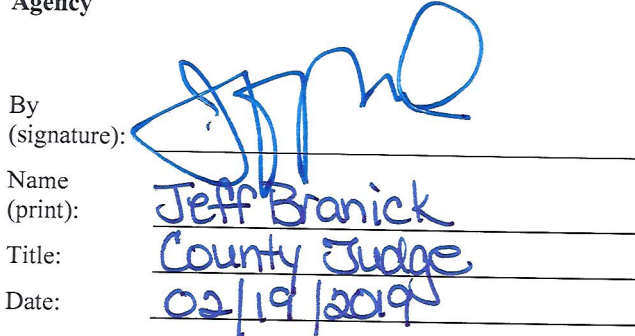 Agency
By
(signature):
Name
(print): Jeff Branick
Title: County Judge
Date: 02/19/2019